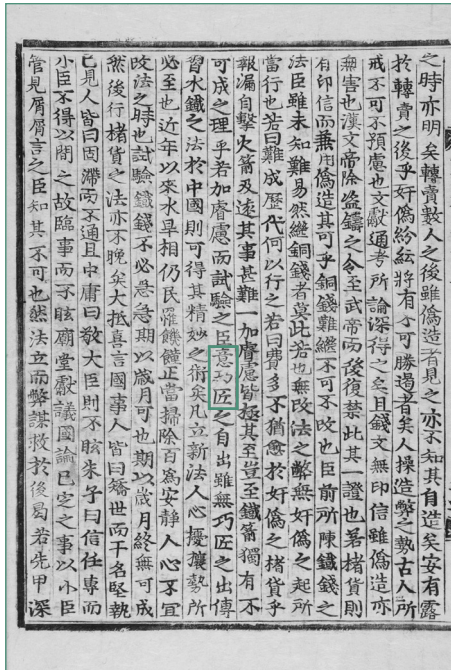 之時亦明矣轉賣數人之後雖僞造者見之亦不知其自造矣安有露
於轉賣之後乎奸僞紛紜將有不可勝遏者矣人操造弊之勢古人所
戒不可不預慮也文獻通考所論深得之矣且錢文無印信雖僞造亦
無害也漢文帝除盜鑄之令至武帝而後復禁此其一證也若楮貨則
有印信而兼用僞造其可乎銅錢難繼不可不改也臣前所陳鐵錢之
法臣雖未知難易然繼銅錢者莫此若也無改法之弊無奸僞之起所
當行也若曰難成歷代何以行之若曰費多不猶愈於奸僞之楮貨乎
報漏自擊火箭及遠其事甚難一加睿慮皆極其至豈至鐵箭獨有不
可成之理乎若加睿慮而試驗之臣意巧匠之自出雖無巧匠之出傳
習水鐵之法於中國則可得其精妙之術矣凡立新法人心擾攘勢所
必至也近年以來水旱相仍民罹饑饉正當掃除百爲安靜人心不宜
改法之時也試驗鐵錢不必急急期以歲月可也期以歲月終無可成
然後行楮貨之法亦不晚矣大抵喜言國事人皆曰矯世而干名堅執
己見人皆曰固滯而不通且中庸曰敬大臣則不眩朱子曰信任專而
小臣不得以間之故臨事而不眩廟堂獻議國論已定之事以小臣
管見屑屑言之臣知其不可也然法立而弊謀救於後曷若先甲深